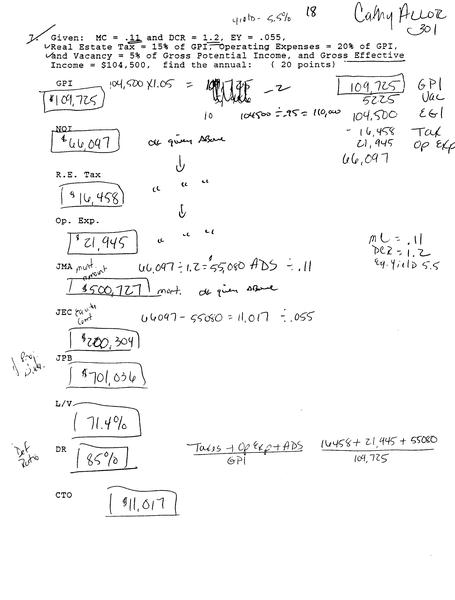 yield- 5.5% 18 Cathy Alloz
301
7. Given: MC = .11 and DCR = 1.2, EY = .055,
Real Estate Tax = 15% of GPI, Operating Expenses = 20% of GPI,
and Vacancy = 5% of Gross Potential Income, and Gross Effective
Income = $104,500, find the annual: ( 20 points)
GPI 104,500 x 1.05 = -2 109,725 GPI
$109,725 5225 Vac
10 104500 ÷ .95 = 110,000 104,500 EGI
NOI - 16,458 Tax
$66,097 ok given above 21,945 Op Exp
66,097
R.E. Tax " " "
$16,458
Op. Exp.
$21,945 " " "
MC = .11
DCR = 1.2
Eq. Yield 5.5
JMA mort. amount 66,097 ÷ 1.2 = $55,080 ADS ÷ .11
$500,727 mort. ok given above
JEC Equity Cont 66097 - 55080 = 11,017 ÷ .055
$200,309
JPB
$701,036
L/V
71.4%
Def Ratio DR 85% Taxes + Op Exp + ADS 16458 + 21,945 + 55080
GPI 109,725
CTO
$11,017